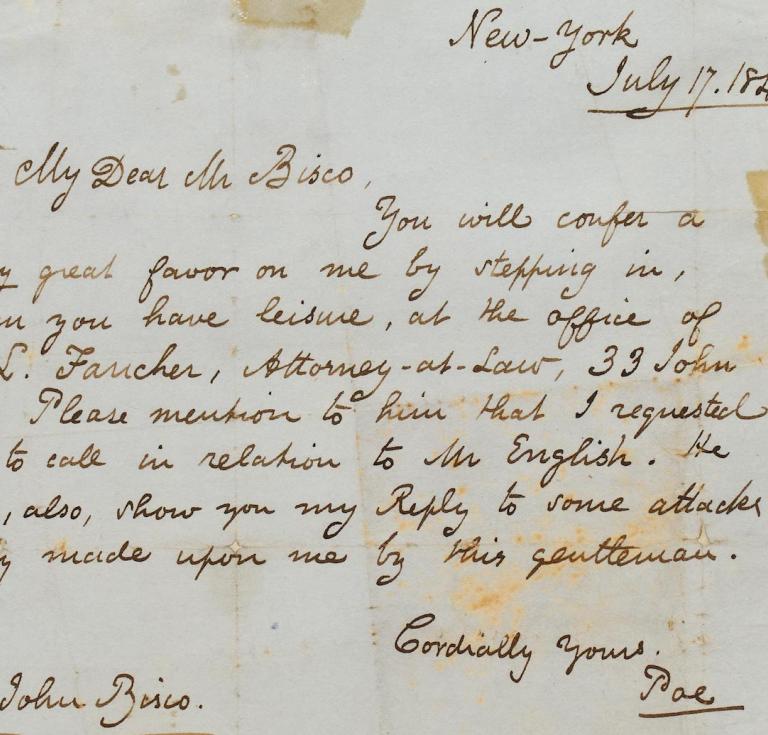 New-York
July 17. 184
My Dear Mr Bisco,
You will confer a
great favor on me by stepping in,
you have leisure, at the office of
L. Fancher, Attorney-at-Law, 33 John
Please mention to him that I requested
to call in relation to Mr English. He
, also, show you my Reply to some attacks
made upon me by this gentleman.
Cordially Yours.
Poe
John Bisco.